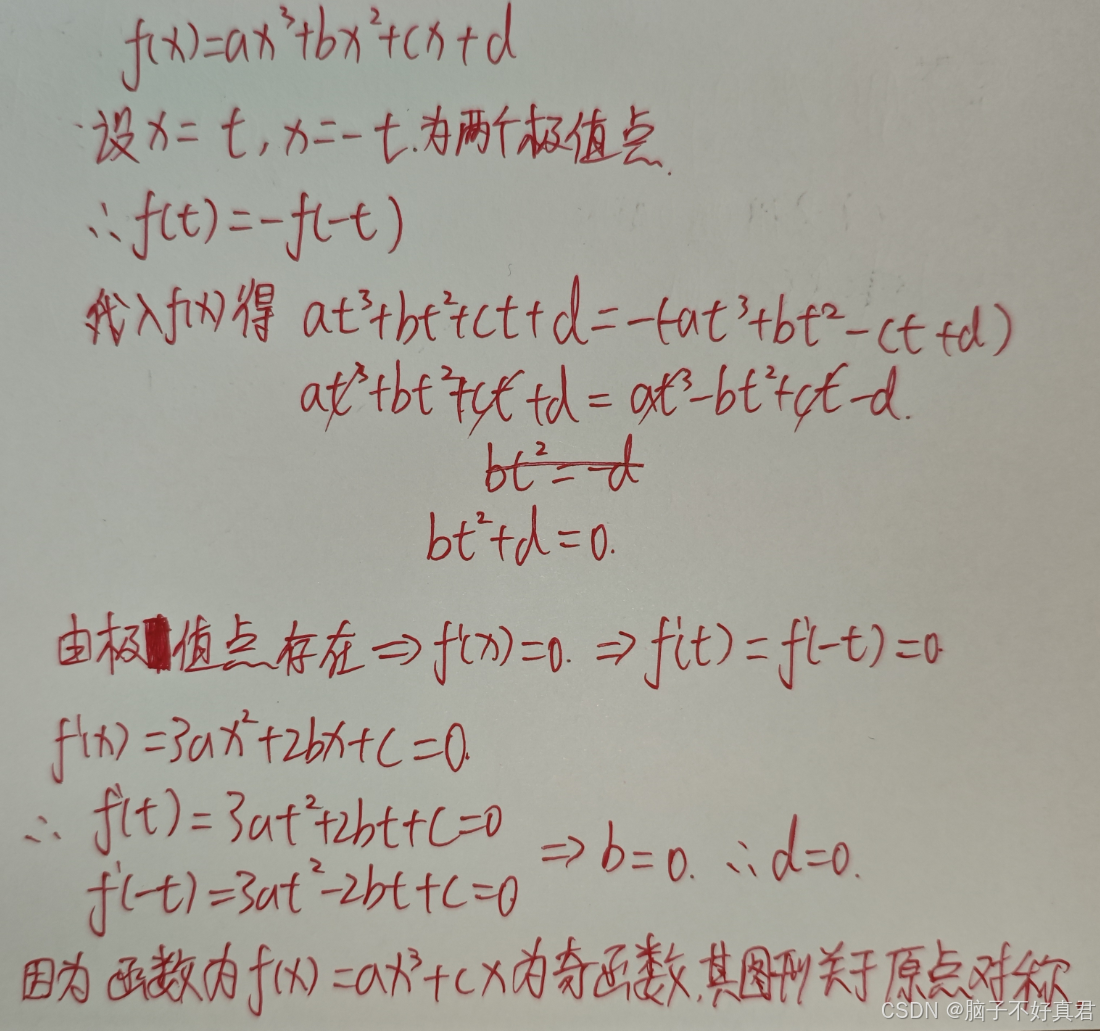 f(x)=ax³+bx²+cx+d
设x=t,x=-t.为两个极值点.
∴f(t)=-f(-t)
代入f(x)得 at³+bt²+ct+d=-(-at³+bt²-ct+d)
at³+bt²+ct+d=at³-bt²+ct-d.
bt²=-d
bt²+d=0.
由极值点存在⇒f'(x)=0.⇒f'(t)=f'(-t)=0.
f'(x)=3ax²+2bx+c=0.
∴ f'(t)=3at²+2bt+c=0
⇒b=0. ∴d=0.
f'(-t)=3at²-2bt+c=0
因为函数为f(x)=ax³+cx为奇函数,其图形关于原点对称.
CSDN @脑子不好真君